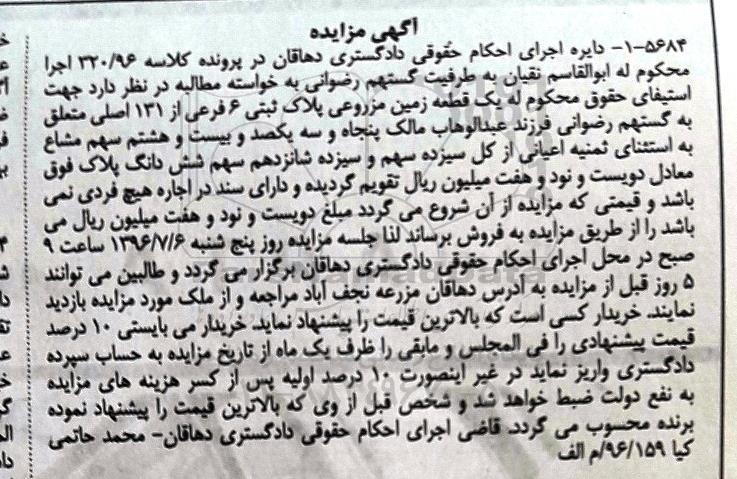 آگهی مزایده
۱-۵۶۸۴- دایره اجرای احکام حقوقی دادگستری دهاقان در پرونده کلاسه ۳۲۰/۹۶ اجرا
محکوم له ابوالقاسم نقبان به طرفیت گستهم رضوانی به خواسته مطالبه در نظر دارد جهت
استیفای حقوق محکوم له یک قطعه زمین مزروعی پلاک ثبتی ۶ فرعی از ۱۳۱ اصلی متعلق
به گستهم رضوانی فرزند عبدالوهاب مالک پنجاه و سه یکصد و بیست و هشتم سهم مشاع
به استثنای ثمنیه اعیانی از کل سیزده سهم و سیزده شانزدهم سهم شش دانگ پلاک فوق
معادل دویست و نود و هفت میلیون ریال تقویم گردیده و دارای سند در اجاره هیچ فردی نمی
باشد و قیمتی که مزایده از آن شروع می گردد مبلغ دویست و نود و هفت میلیون ریال می
باشد را از طریق مزایده به فروش برساند لذا جلسه مزایده روز پنج شنبه ۱۳۹۶/۷/۶ ساعت ۹
صبح در محل اجرای احکام حقوقی دادگستری دهاقان برگزار می گردد و طالبین می توانند
۵ روز قبل از مزایده به آدرس دهاقان مزرعه نجف آباد مراجعه و از ملک مورد مزایده بازدید
نمایند. خریدار کسی است که بالاترین قیمت را پیشنهاد نماید. خریدار می بایستی ۱۰ درصد
قیمت پیشنهادی را فی المجلس و مابقی را ظرف یک ماه از تاریخ مزایده به حساب سپرده
دادگستری واریز نماید در غیر اینصورت ۱۰ درصد اولیه پس از کسر هزینه های مزایده
به نفع دولت ضبط خواهد شد و شخص قبل از وی که بالاترین قیمت را پیشنهاد نموده
برنده محسوب می گردد. قاضی اجرای احکام حقوقی دادگستری دهاقان- محمد حاتمی
کیا ۹۶/۱۵۹/م الف